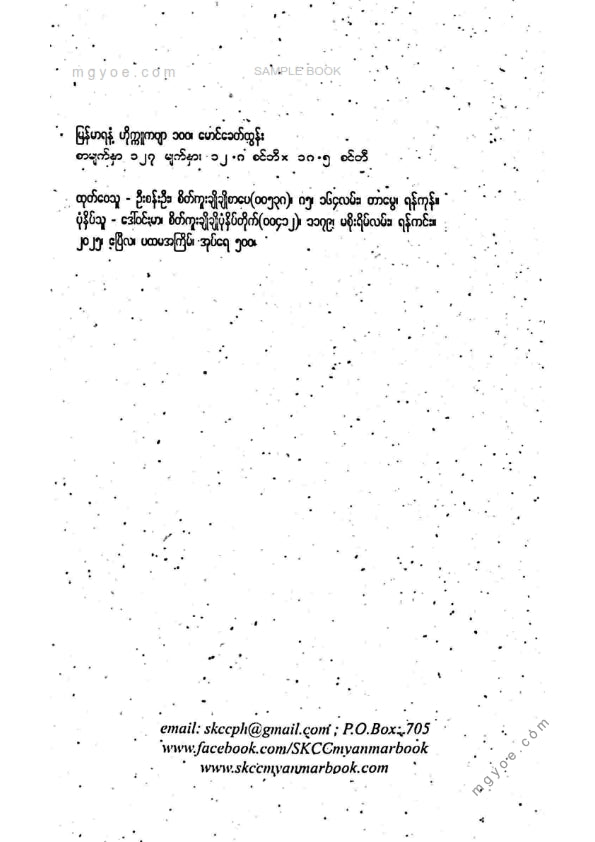 mgyoe.com
SAMPLE BOOK
မြန်မာရနံ့ ဟိုက္ကူကဗျာ ၁၀၀၊ မောင်ခေတ်ထွန်း
စာမျက်နှာ ၁၂၇ မျက်နှာ၊ ၁၂.၈ စင်တီ× ၁၈.၅ စင်တီ
ထုတ်ဝေသူ - ဦးစန်းဦး၊ စိတ်ကူးချိုချိုစာပေ(၀၀၅၃၈)၊ ၈၅၊ ၁၆၄လမ်း၊ တာမွေ၊ ရန်ကုန်။
ပုံနှိပ်သူ - ဒေါ်ဝင်းမာ၊ စိတ်ကူးချိုချိုပုံနှိပ်တိုက်(၀၀၄၁၂)၊ ၁၁၇၉၊ မစိုးရိမ်လမ်း၊ ရန်ကင်း။
၂၀၂၅၊ ဧပြီလ၊ ပထမအကြိမ်၊ အုပ်ရေ ၅၀၀၊
email: skccph@gmail.com ; P.O.Box: 705
www.facebook.com/SKCCmyanmarbook
www.skccmyanmarbook.com
mgyoe.com